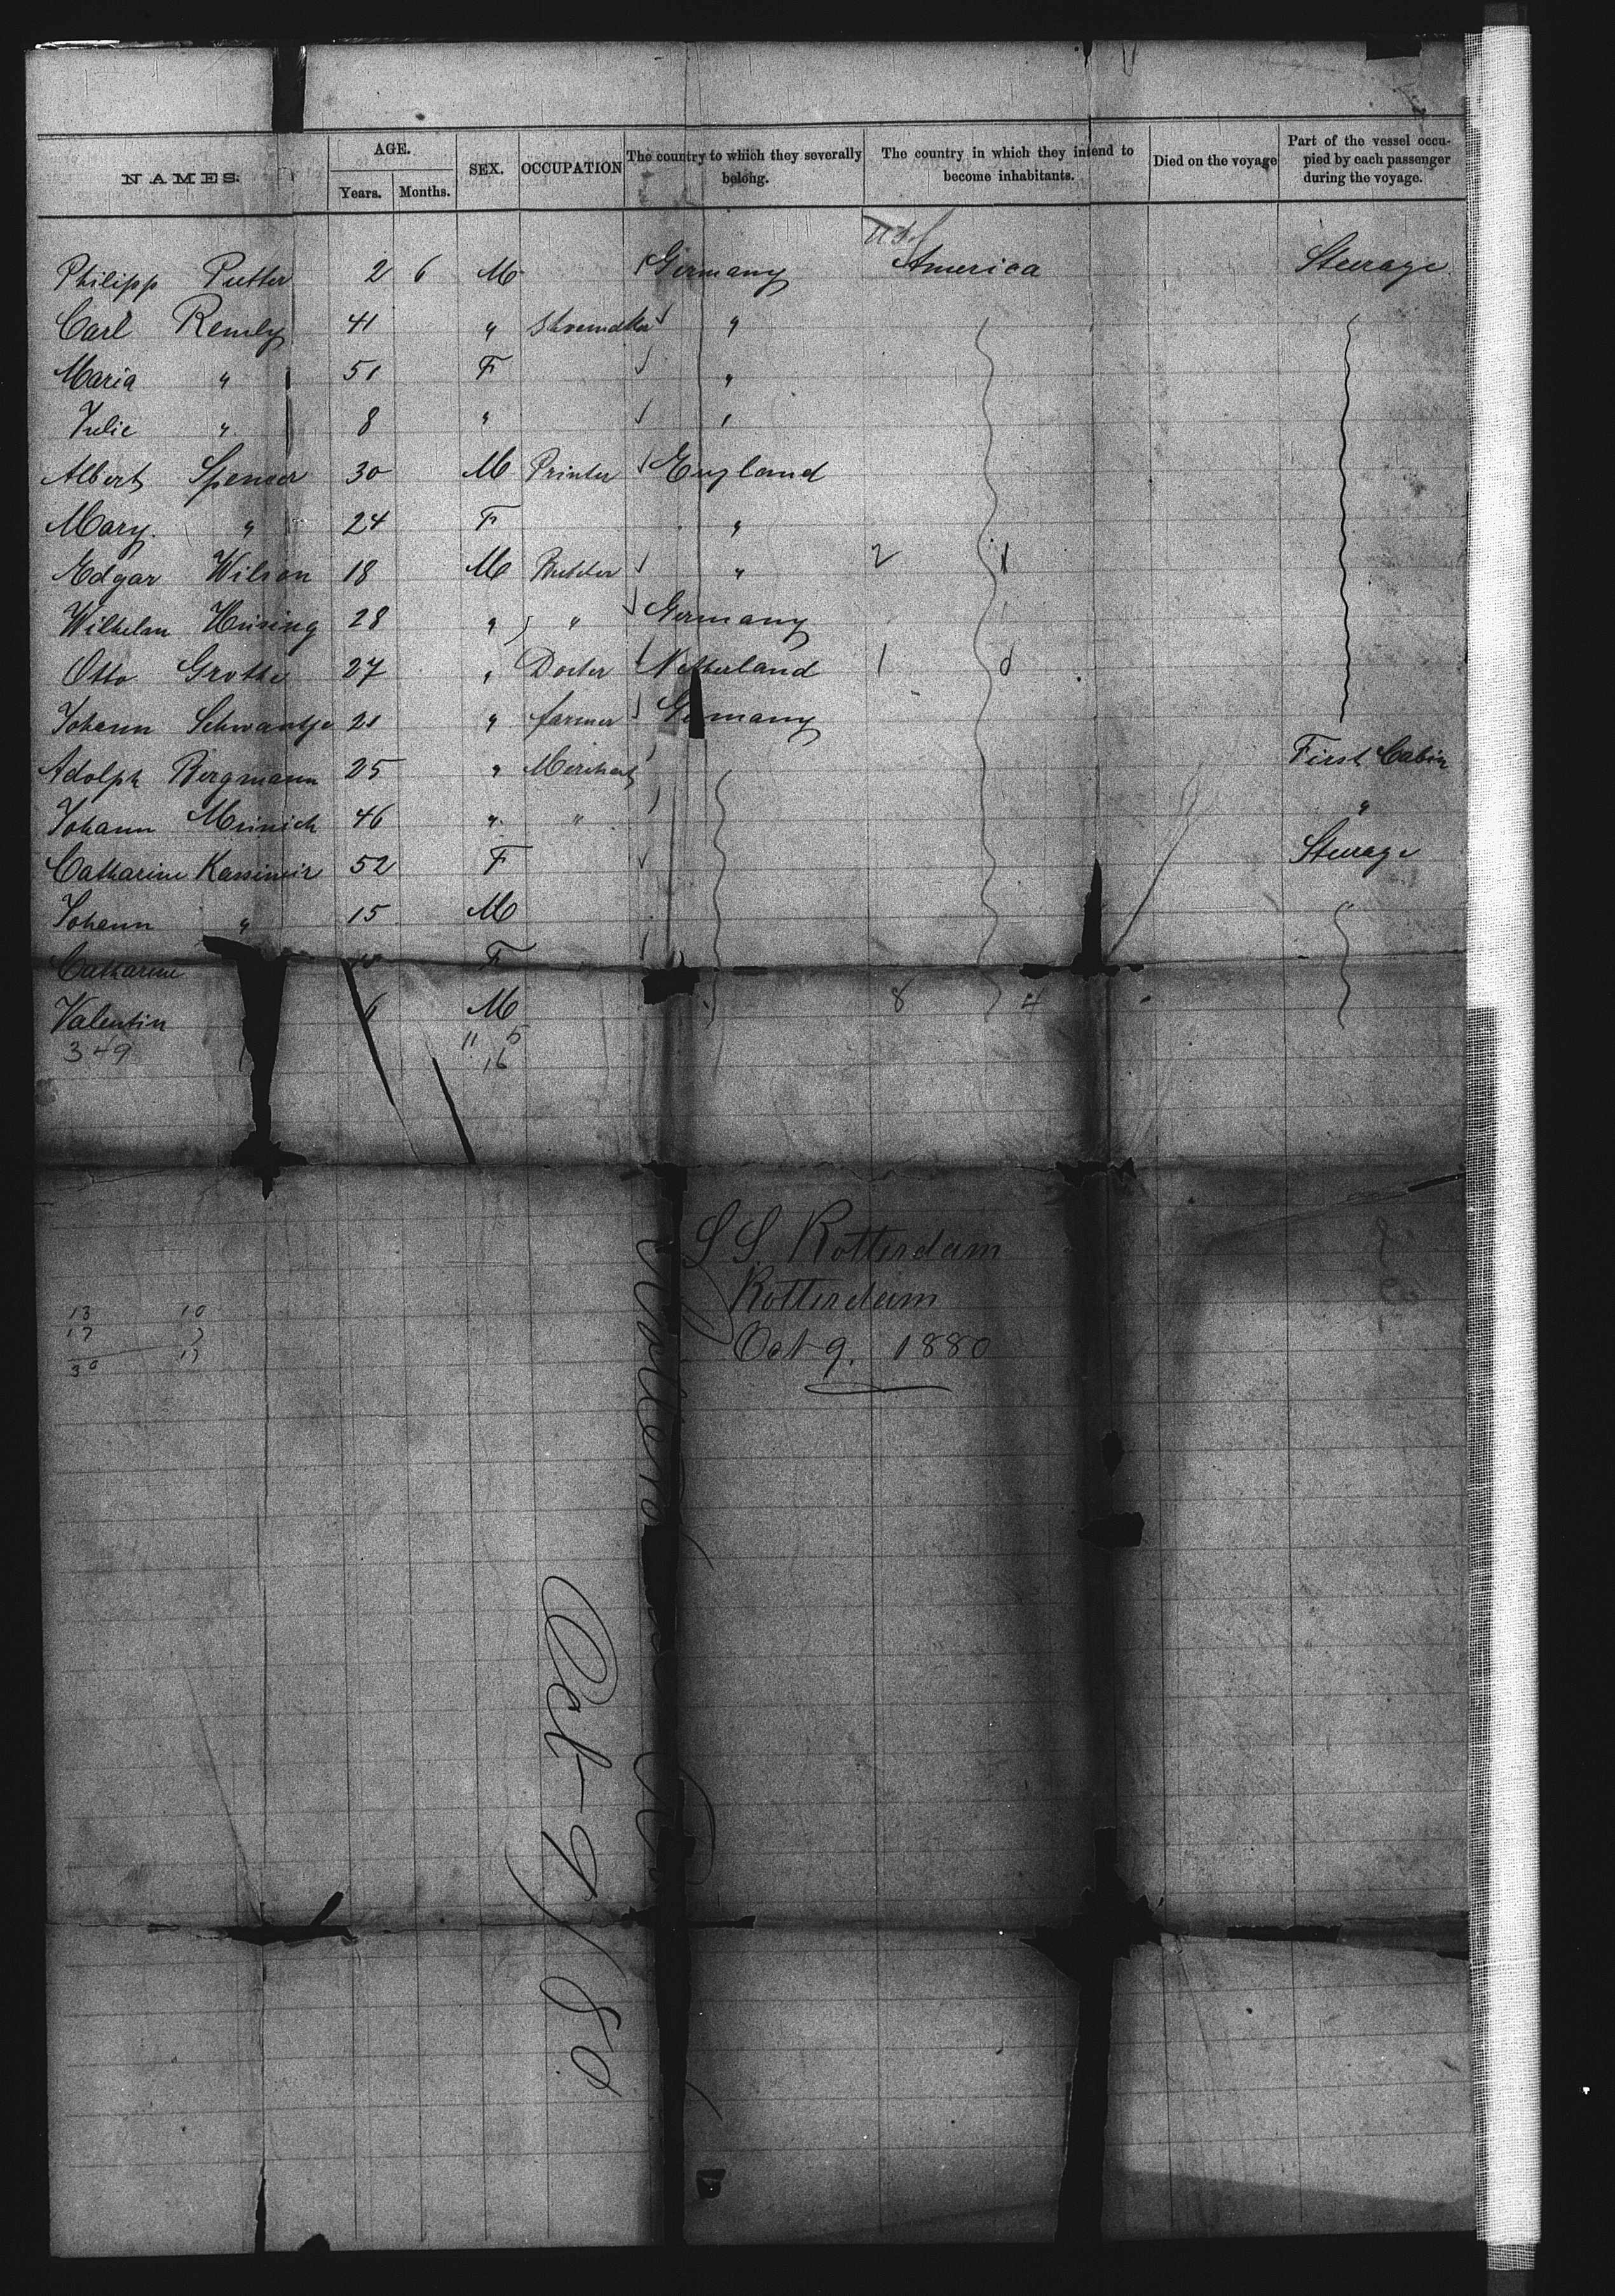 NAMES. AGE. Years. Months. SEX. OCCUPATION The country to which they severally belong. The country in which they intend to become inhabitants. Died on the voyage Part of the vessel occupied by each passenger during the voyage.
Philipp Putter 2 6 M Germany America Steerage
Carl Remly 41 " "
Maria " 51 F "
Julie " 8 " "
Albert Spencer 30 M Printer England
Mary " 24 F "
Edgar Wilson 18 M "
Wilhelm 28 " " Germany
Otto Grothe 27 " Docter Netherland
Johann Schwantje 21 " farmer Germany
Adolph Bergmann 25 " First Cabin
Johann 46 " " "
Catharine Kassimir 52 F Steerage
Johann " 15 M
Catharine F
Valentin 6 M
349 11 5
16
8 4
S S. Rotterdam
Rotterdam
Oct 9. 1880
13 10
17 7
30 17
Oct 9/80